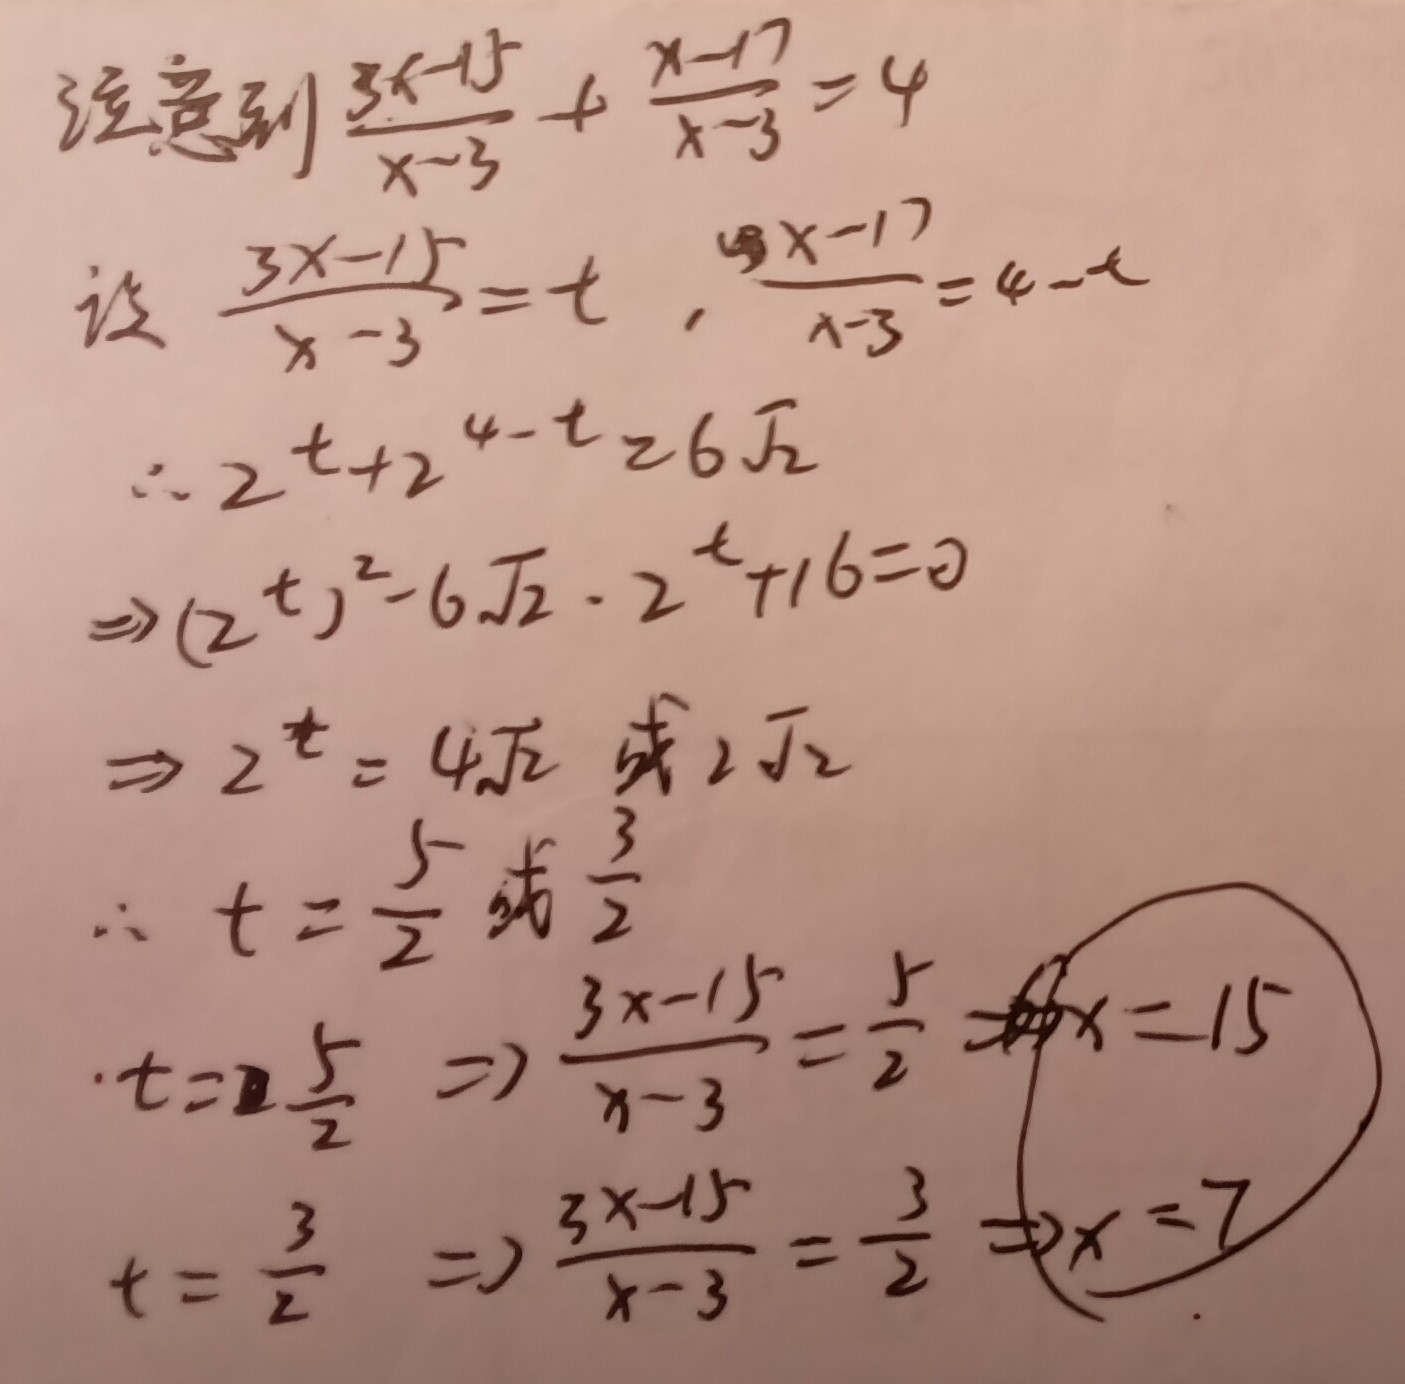 注意到 (3x-15)/(x-3) + (x-17)/(x-3) = 4
设 (3x-15)/(x-3) = t , (x-17)/(x-3) = 4-t
∴ 2^t + 2^(4-t) = 6√2
⇒ (2^t)^2 - 6√2 · 2^t + 16 = 0
⇒ 2^t = 4√2 或 2√2
∴ t = 5/2 或 3/2
t = 5/2 ⇒ (3x-15)/(x-3) = 5/2 ⇒ x = 15
t = 3/2 ⇒ (3x-15)/(x-3) = 3/2 ⇒ x = 7